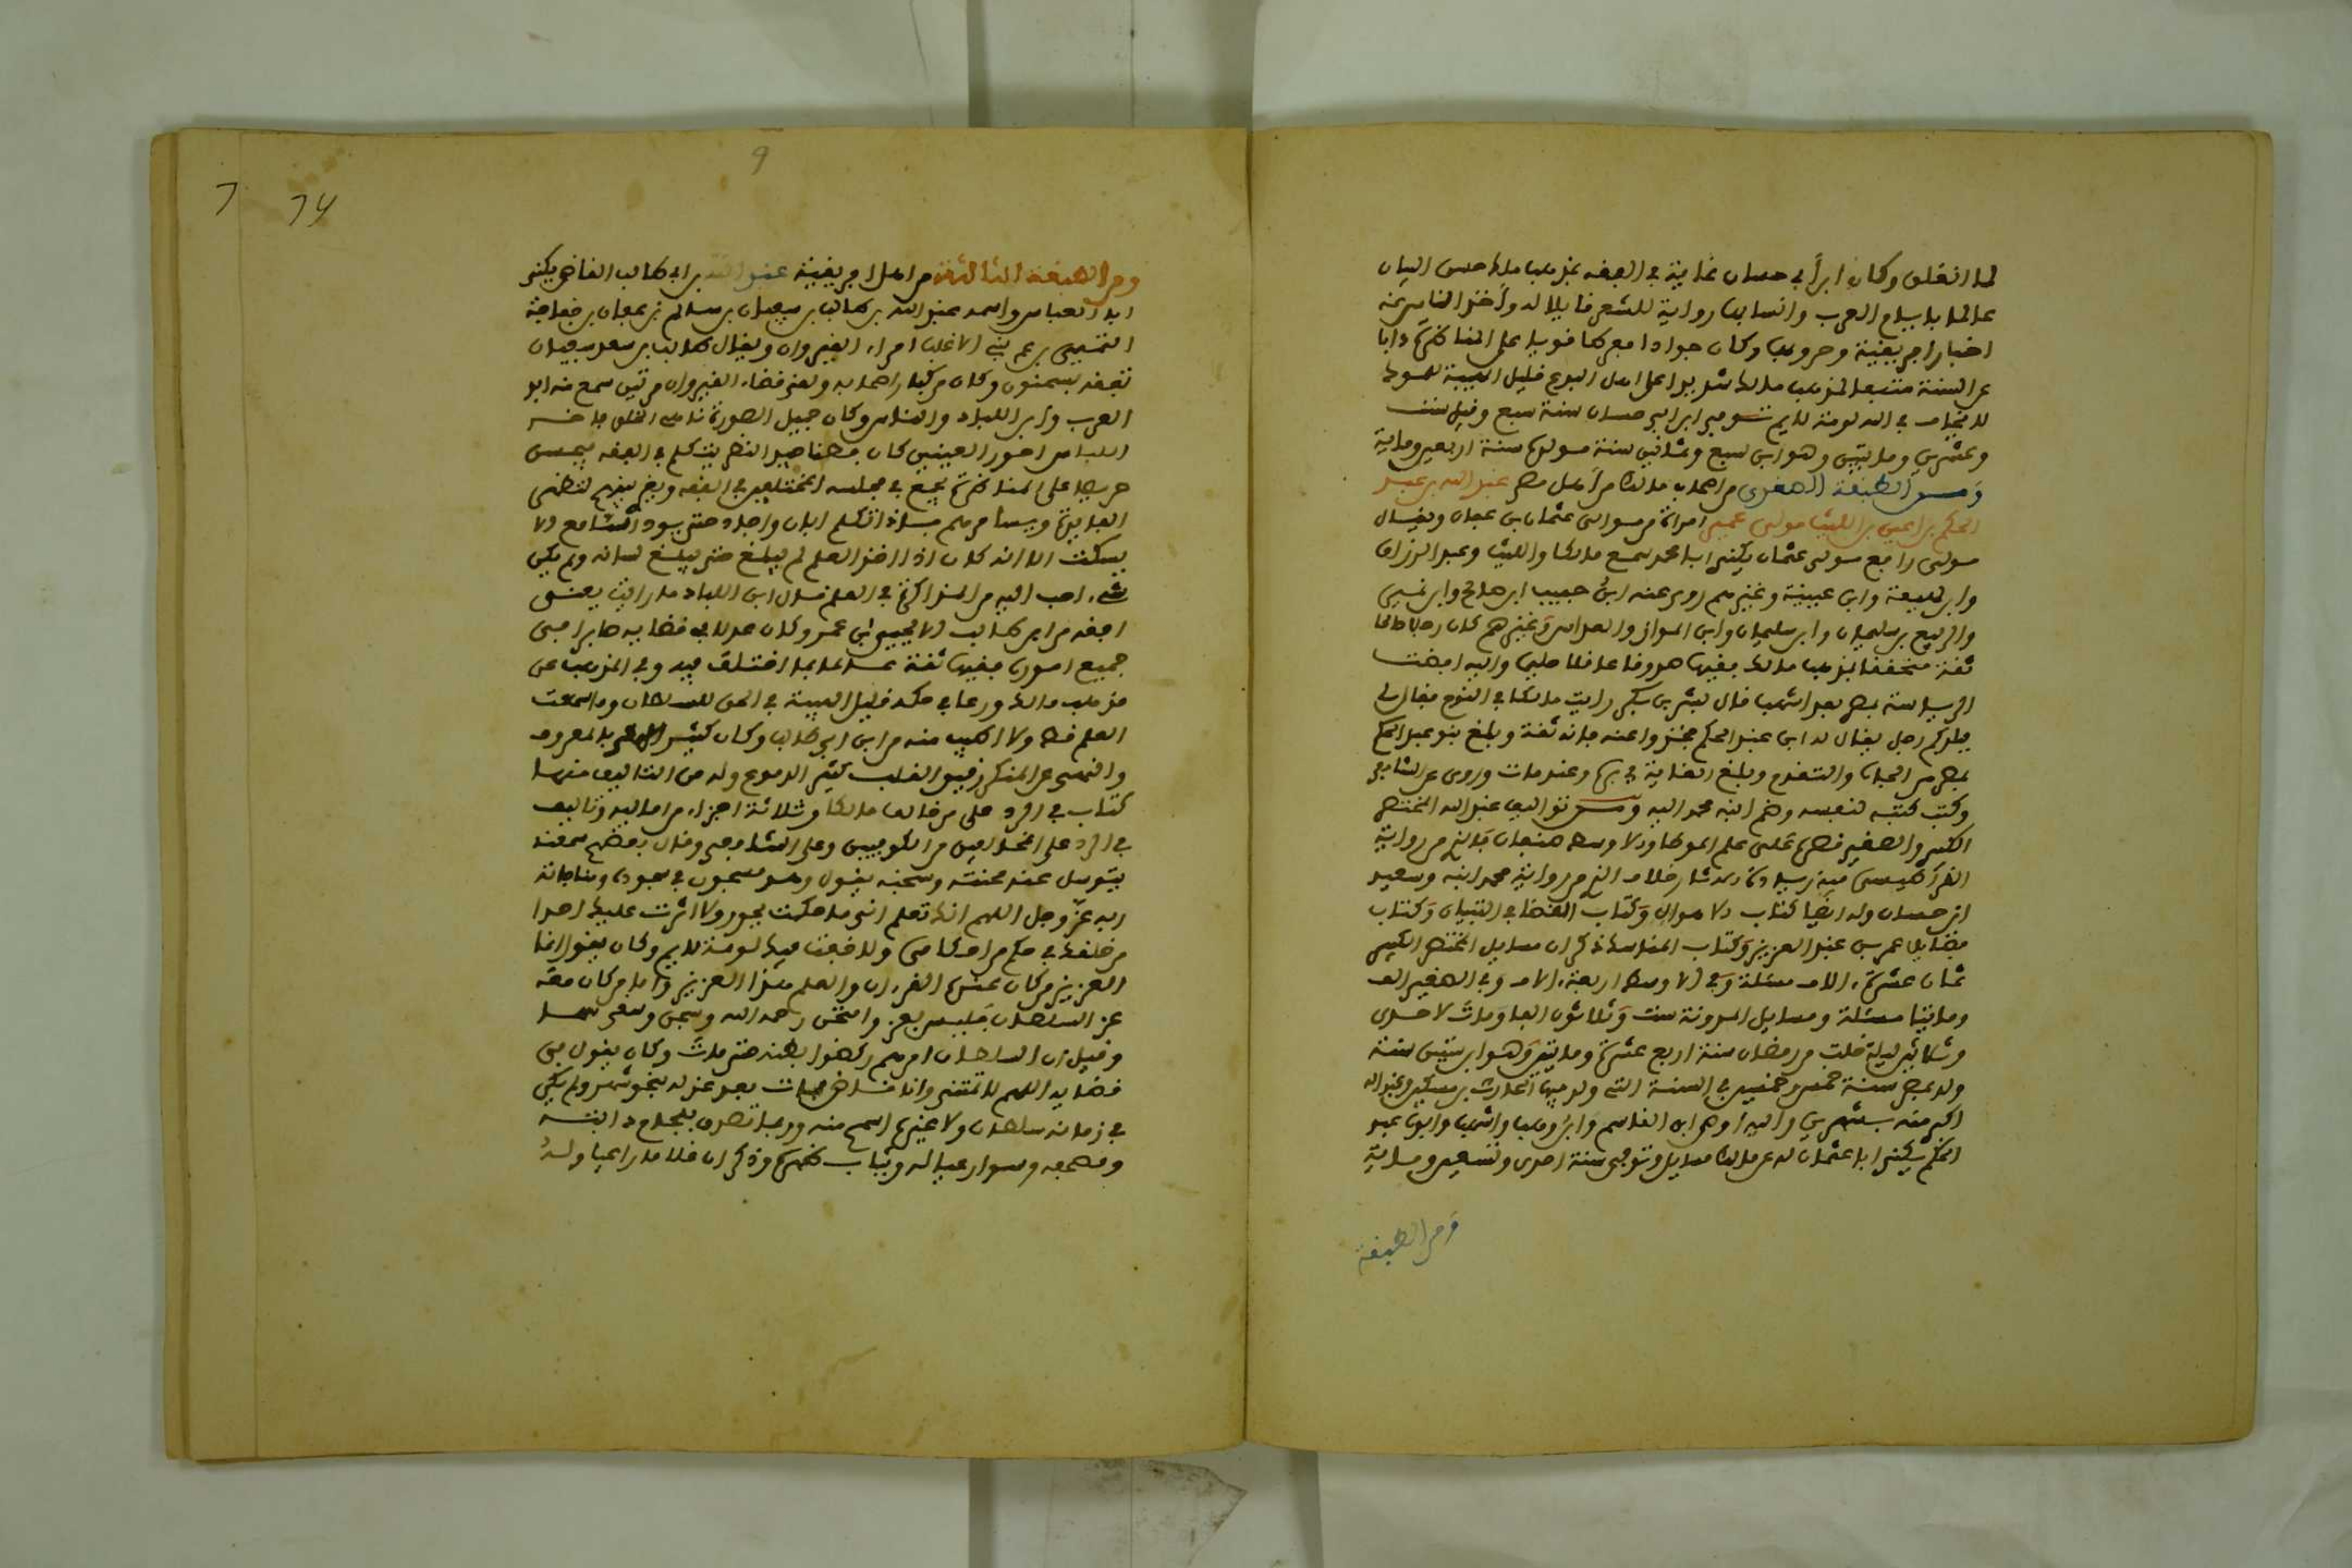 لما انغلق وكان ابن أبي حسان غاية في الفقه بمذهب مالك حسن البيان
عالما بايام العرب وانسابها راوية للشعر قايلا له وأخذ الناس عنه
اخبار افريقية وحروبها وكان جوادا مفوها قويا على المناظرة ذابا
عن السنة متبعا لمذهب مالك شديدا على اهل البدع قليل الهيبة للملوك
لا يخاف في الله لومة لايم توفي ابن ابي حسان سنة سبع وقيل ست
وعشرين ومايتين وهو ابن سبع وثمانين سنة مولده سنة اربعين ومائة
ومن الطبقة الصغرى من اصحاب مالك من أهل مصر عبد الله بن عبد
الحكم بن اعين بن الليث مولى عميرة امرأة من موالي عثمان بن عفان ويقال
مولى رافع مولى عثمان يكنى ابا محمد سمع مالكا والليث وعبد الرزاق
وابن لهيعة وابن عيينة وغيرهم روى عنه ابن حبيب ابن صالح وابن نمير
والربيع بن سليمان وابن المواز وغيرهم كان رجلا صالحا
ثقة متحققا بمذهب مالك فقيها صدوقا عاقلا حليما واليه افضت
الرياسة بمصر بعد اشهب قال بشر بن بكر رايت مالكا في النوم فقال لي
ببلدكم رجل يقال له ابن عبد الحكم فخذوا عنه فانه ثقة وبلغ بنو عبد الحكم
بمصر من الجاه والتقدم وبلغ الغاية وعنده مات وروى عن الشافعي
وكتب كتبه لنفسه وضم ابنه محمد اليه ومن تواليف عبد الله المختصر
الكبير والصغير قصره على علم الموطا والاوسط صنفان فالذي من رواية
القراطيسي فيه زيادة الاثار خلاف الذي من رواية محمد ابنه وسعيد
بن حسان وله ايضا كتاب الاهوال وكتاب القضا في البنيان وكتاب
فضايل عمر بن عبد العزيز وكتاب المناسك ذكر ان مسايل المختصر الكبير
ثمان عشرة الاف مسئلة وفي الاوسط اربعة الاف وفي الصغير الف
ومايتا مسئلة ومسايل المدونة ست وثلاثون الفا ومات لاحدى
وعشرين ليلة خلت من رمضان سنة اربع عشرة ومايتين وهو ابن ستين سنة
ولد بمصر سنة خمس وخمسين في السنة التي ولد فيها الحارث بن مسكين وعبد الله
اكبر منه بشهرين واليه اوصى ابن القاسم وابن وهب واشهب وابوه عبد
الحكم يكنى ابا عثمان له عن مالك مسايل وتوفي سنة احدى وتسعين ومائة
ومن الطبقة
9
ومن الطبقة الثالثة من اهل افريقية عبد الله بن ابي طالب القاضي يكنى
ابا العباس واسمه عبد الله بن طالب بن سفيان بن سالم بن عقال بن خفاجة
التميمي بن عم بني الاغلب امراء القيروان ويقال طالب بن سعد بن سفيان
تفقه بسحنون وكان من كبار اصحابه ولقي قضاء القيروان مرتين سمع منه ابو
العرب وابن اللباد والناس وكان جميل الصورة تام الخلق فاخر
اللباس احور العينين كان فصنا جيد النظر يتكلم في الفقه فيحسن
حريصا على المناظرة يجمع في مجلسه المختلفين في الفقه ويغري بينهم لتظهر
الفايدة ويسامرهم فاذا تكلم ابان واجاد حتى يود السامع الا
يسكت الا انه كان اذا اخذ القلم لم يبلغ حيث يبلغ لسانه ولم يكن
شيء احب اليه من المذاكرة في العلم قال ابن اللباد ما رايت بعيني
افقه من ابن طالب الا يحيى بن عمر وكان عدلا في قضايه صابرا في
جميع اموره فقيها ثقة عالما بما اختلف فيه وفي الذب عن
مذهب مالك ورعا في حكمه قليل الهيبة في الحق للسلطان وما سمعت
العلم قط ولا اطيب منه من ابن ابي طالب وكان كثير الامر بالمعروف
والنهي عن المنكر رقيق القلب كثير الدموع وله من التاليف منها
كتاب في الرد على من خالف مالكا وثلاثة اجزاء من اماليه وتاليف
في الرد على المخالفين من الكوفيين وعلى الشافعي وقال بعضهم سمعته
يتوسل عند محنته وسجنه يقول وهو مسجون في سجوده ومناجاته
ربه عز وجل اللهم انك تعلم اني ما حكمت بجور ولا اثرت عليك احدا
من خلقك في حكم من احكامي ولا خفت فيك لومة لايم وكان يقول انما
العزيز من كان عنده القرءان والعلم هذا العزيز واما من كان معه
عز السلطان فليس بعز وامتحن رحمه الله وسجن
وقيل ان السلطان امرهم ركضوا بطنه حتى مات وكان يقول في
قضايه اللهم لا تمتني وانا قاض فمات بعد عزله بنحو شهر ولم يكن
في زمانه سلطان ولا غيره اسمح منه وربما تصدق بلجام دابته
ومصحفه وسوار عياله وثياب ظهره وذكر ان غلاما راعيا ولد